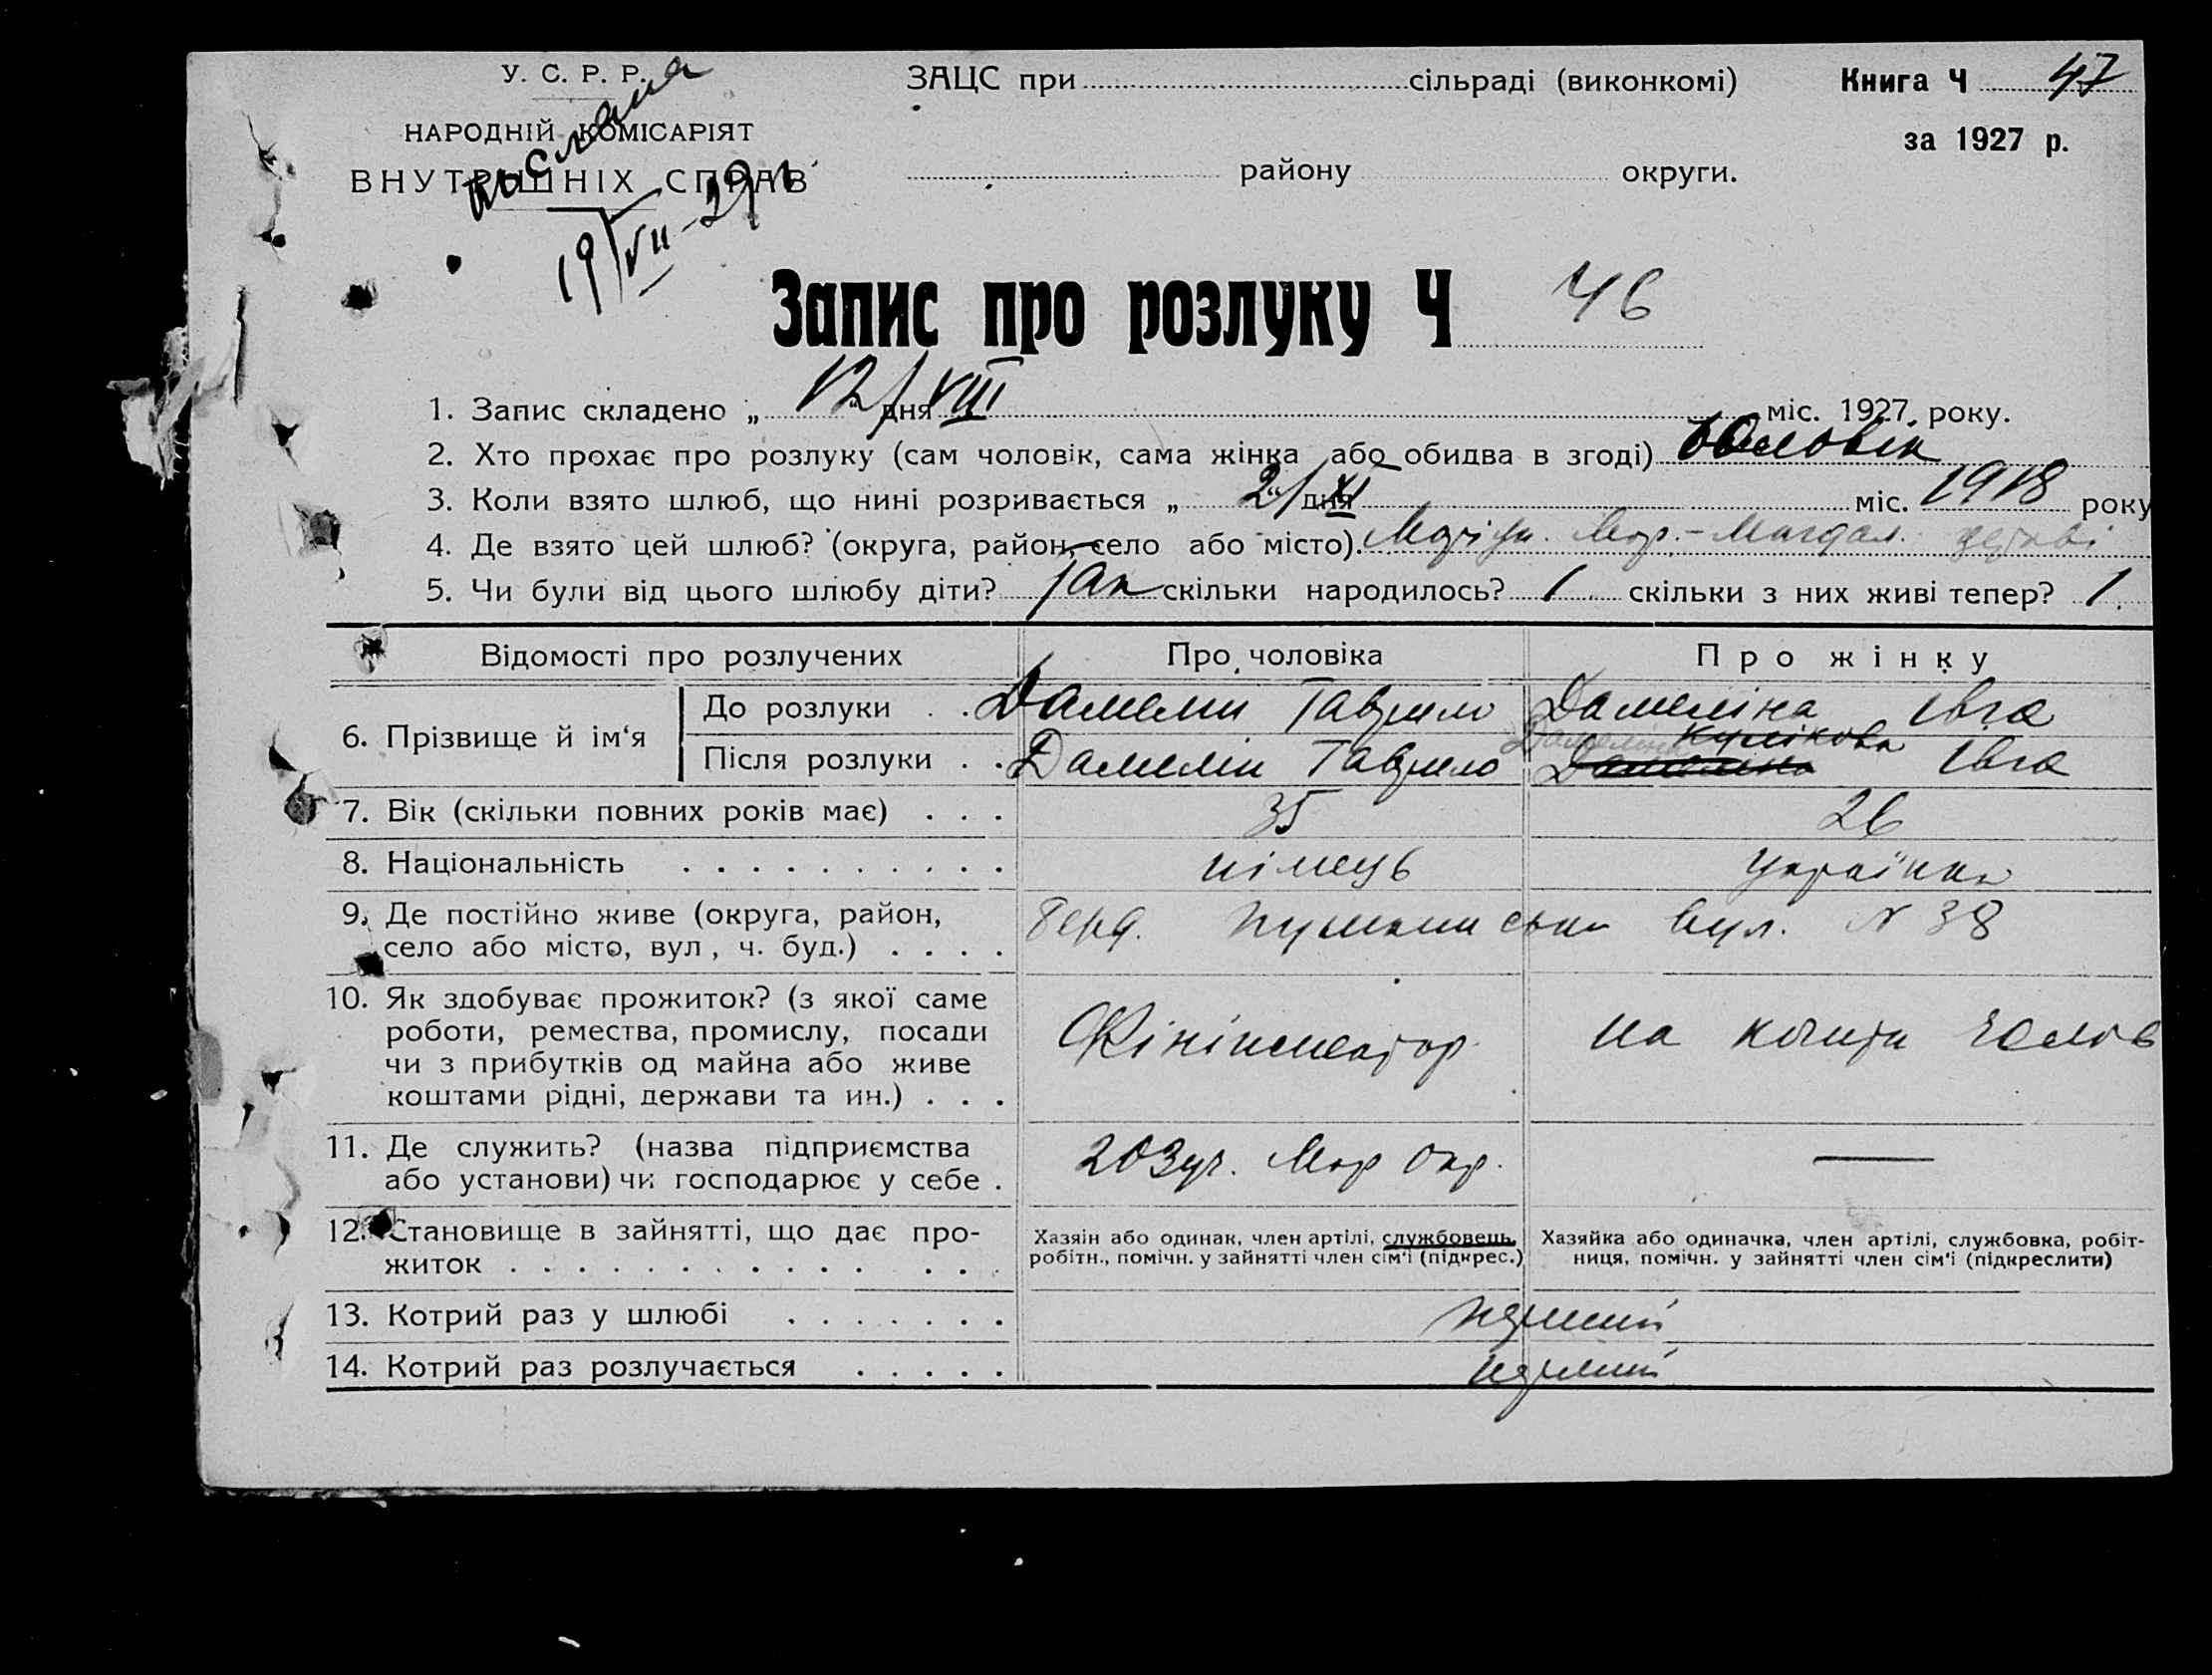 У. С. Р. Р.
НАРОДНІЙ КОМІСАРІЯТ
ВНУТРІШНІХ СПРАВ
выслана
19/VII-29 г.
ЗАЦС при сільраді (виконкомі)
району округи.
Книга Ч 47
за 1927 р.
Запис про розлуку Ч 46
1. Запис складено „ 12/ дня VIII міс. 1927 року.
2. Хто прохає про розлуку (сам чоловік, сама жінка або обидва в згоді) Чоловік
3. Коли взято шлюб, що нині розривається „ 2/“ дня XI міс. 1918 року
4. Де взято цей шлюб? (округа, район, село або місто). Мар.-Магдал.
5. Чи були від цього шлюбу діти? так скільки народилось? 1 скільки з них живі тепер? 1.
Відомості про розлучених Про чоловіка Про жінку
6. Прізвище й ім‘я
До розлуки . . Дамелін Гаврило Дамеліна Івга
Після розлуки . . Дамелін Гаврило Дамеліна Кулікова Івга
7. Вік (скільки повних років має) . . . 35 26
8. Національність . . . . . . . . . . німець українка
9. Де постійно живе (округа, район,
село або місто, вул, ч. буд.) . . . . Берд. Пушкинська вул. № 38
10. Як здобуває прожиток? (з якої саме
роботи, ремества, промислу, посади
чи з прибутків од майна або живе
коштами рідні, держави та ин.) . . . Фінінспектор на кошти чолов
11. Де служить? (назва підприємства
або установи) чи господарює у себе . Мар Окр. —
12. Становище в зайнятті, що дає про-
житок . . . . . . . . . . . . . .
Хазяін або одинак, член артілі, службовець,
робітн., помічн. у зайнятті член сім‘ї (підкрес.)
Хазяйка або одиначка, член артілі, службовка, робіт-
ниця, помічн. у зайнятті член сім‘ї (підкреслити)
13. Котрий раз у шлюбі . . . . . . . перший
14. Котрий раз розлучається . . . . . перший